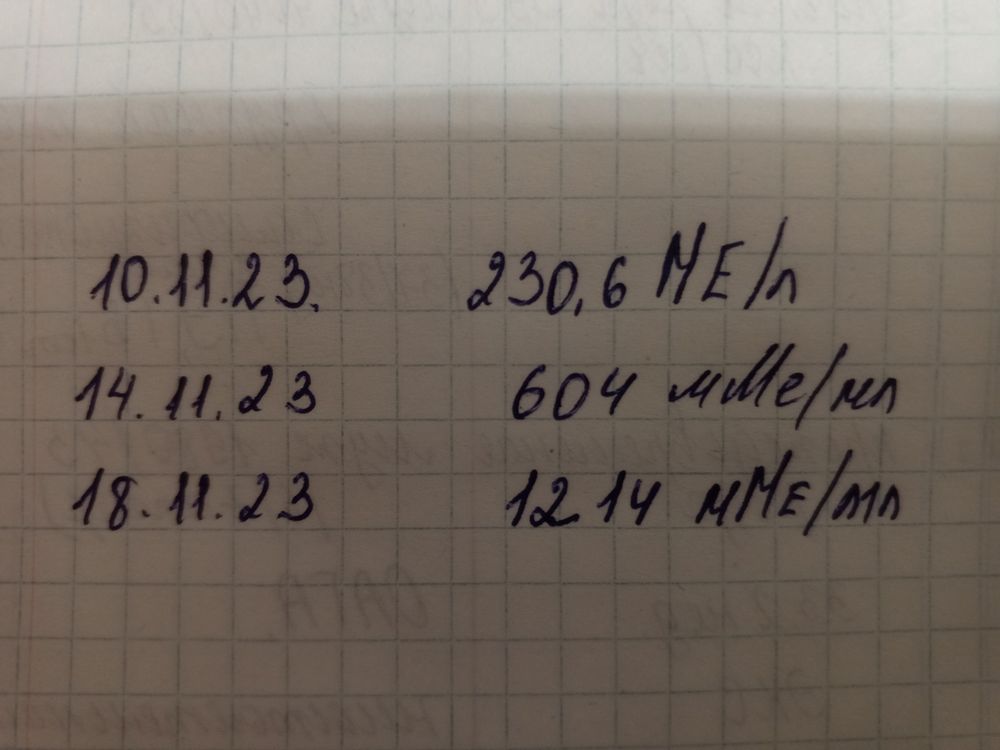 10.11.23. 230,6 МЕ/л
14.11.23 604 мМе/мл
18.11.23 1214 мМЕ/мл